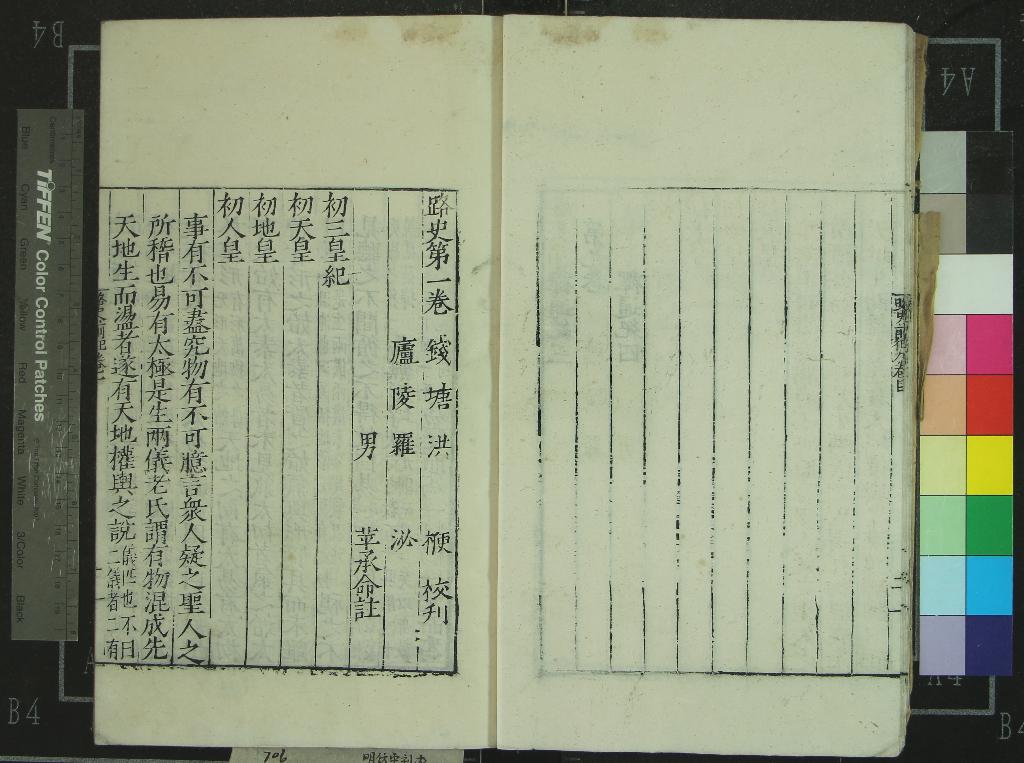 路史第一卷　錢塘洪　楩　校刊
廬陵羅　泌
男　苹承命註
初三皇紀
初天皇
初地皇
初人皇
事有不可盡究物有不可臆言衆人疑之聖人之
所稽也易有太極是生兩儀老氏謂有物混成先
天地生而盪者遂有天地權輿之說
儀匹也不曰
二儀者二有
B4
A4
B4
A4
B4
TIFFEN Color Control Patches
Centimetres
Blue
Cyan
Green
Yellow
Red
Magenta
White
3/Color
Black
706